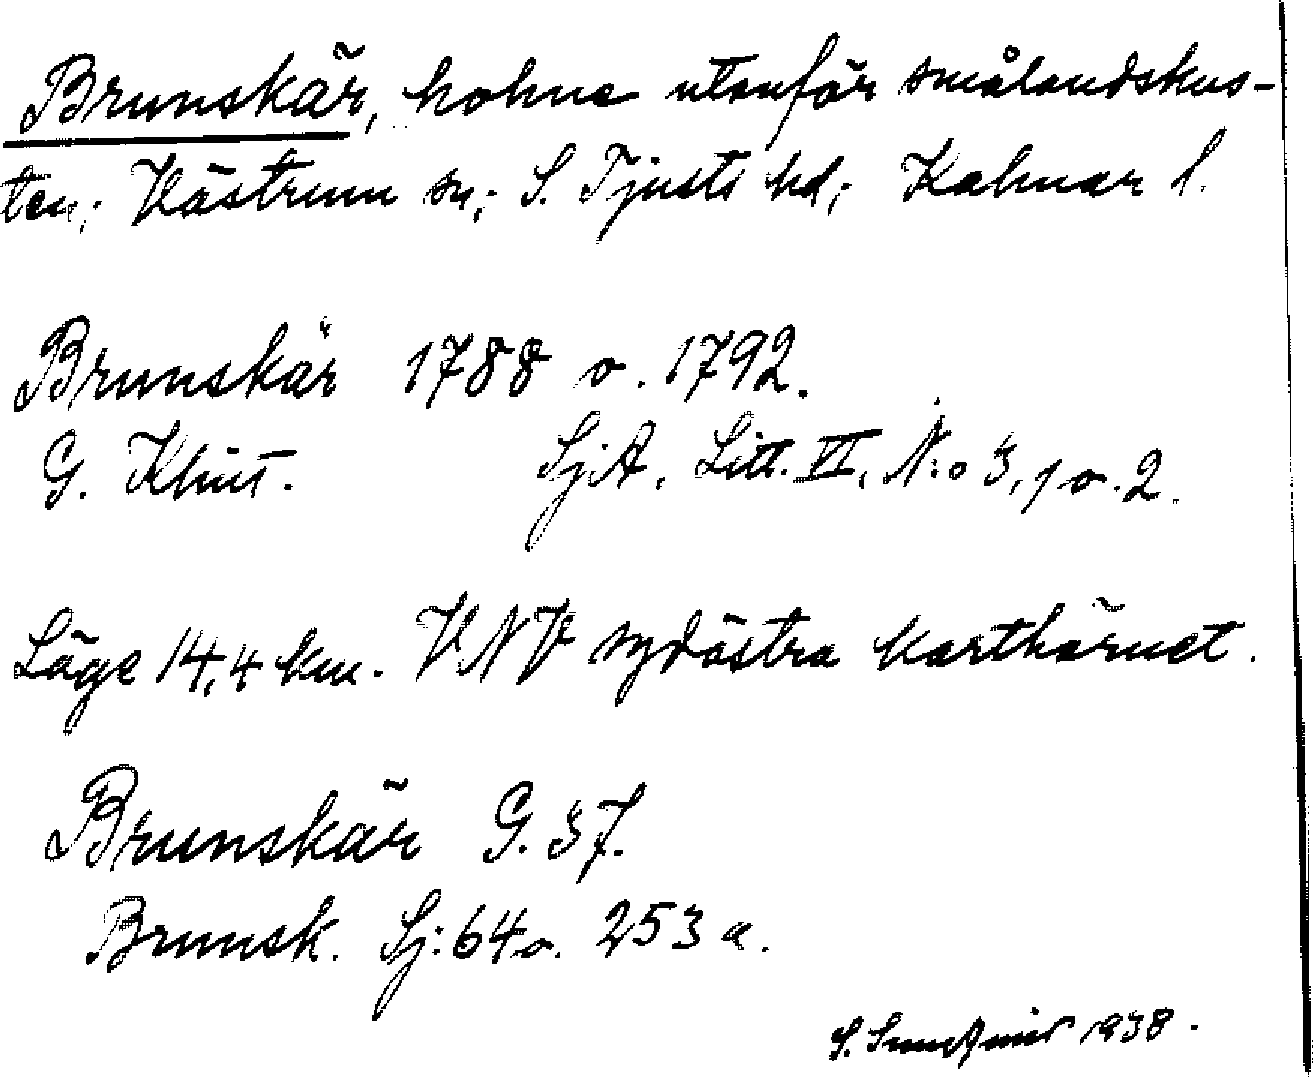 Brunskär, holme utanför smålandskus-
ten; Västrum sn; S. Tjusts hd; Kalmar l.
Brunskär 1788 o. 1792.
G. Klint. SjA. Litt. VI, N:o 3, 1 o. 2.
Läge 14,4 km. VNV sydöstra karthörnet.
Brunskär G. 37.
Brunsk. Sj: 64 o. 253 a.
S. 1938.